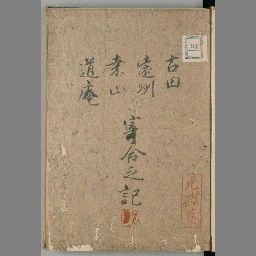 古田
遠州
桒山
道庵
寄合之記